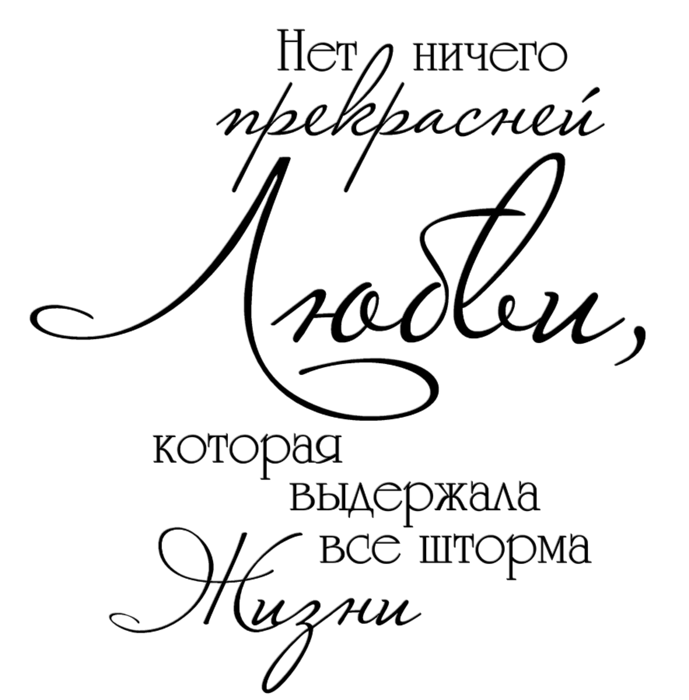 Нет ничего
прекрасней
Любви,
которая
выдержала
все шторма
Жизни